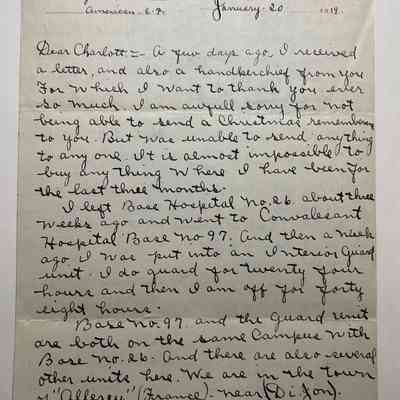 American. E. F. January. 20 1919.
Dear Charlott:- A few days ago I received
a letter, and also a handkerchief from you
For which I want to thank you ever
so much. I am awfull sorry for not
being able to send a Christmas remembrance
to you. But was unable to send anything
to any one. It is almost impossible to
buy anything where I have been for
the last three months.
I left Base Hospital No. 26. about three
weeks ago and went to Convalesant
Hospital Base No 97. And then a week
ago I was put into an Interior Guard
unit. I do guard for twenty four
hours and then I am off for forty
eight hours.
Base No. 97. and the Guard unit
are both on the same Campus with
Base No. 26. And there are also several
other units here. We are in the town
of "Allerey" (France). near (Dijon).